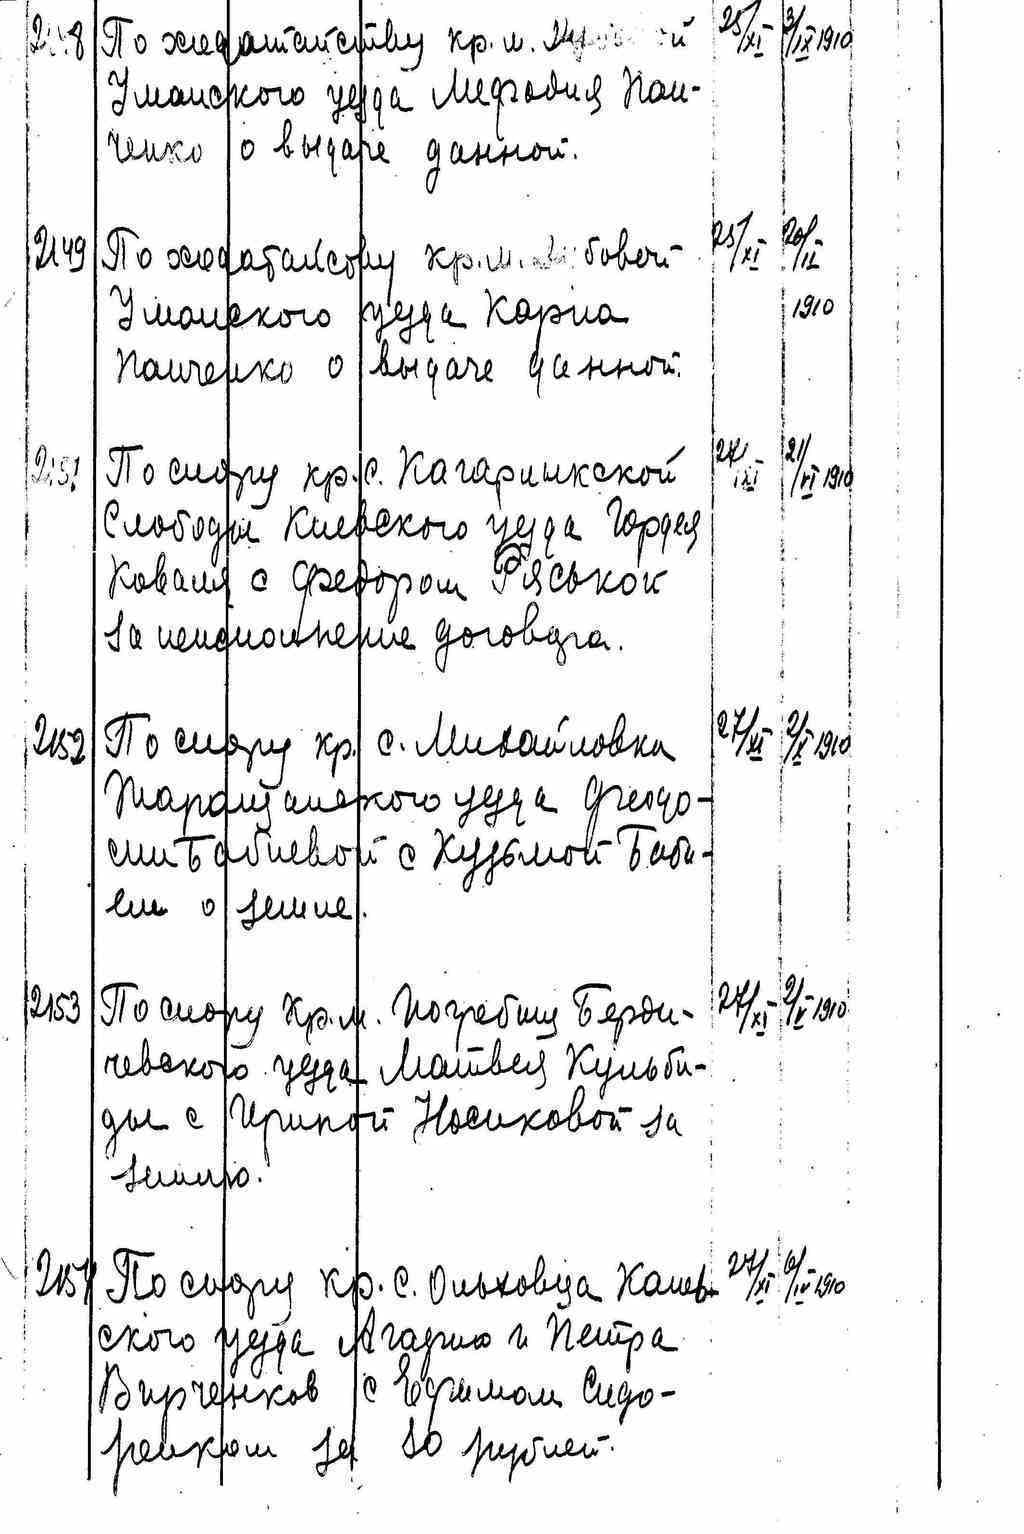 По ходатайству кр. м. 25/XI 3/IX 1910
Уманского уезда Мефодия Пан-
ченко о выдаче данной.
2149 По ходатайству кр. м. 25/XI 20/IX
Уманского уезда Карпа 1910
Панченко о выдаче данной.
2151 По спору кр. с. Кагарлыкской 27/XI 21/VI 1910
Слободы Киевского уезда Гордея
Коваля с Федором
за неисполнение договора.
2152 По спору кр. с. Михайловка 27/XI 2/X 1910
Таращанского уезда Феодо-
сии Бабиевой с Кузьмой Баби-
ем о земле.
2153 По спору кр. м. Погребищ Берди- 27/XI 2/V 1910
чевского уезда Матвея Кульби-
ды с Ириной Носиковой за
землю.
2154 По спору кр. с. Ольховца Канев- 27/XI 6/IV 1910
ского уезда и Петра
Вирченков с Ефимом Сидо-
ренком за 10 рублей.